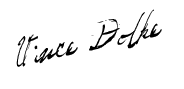 Vince Dolke